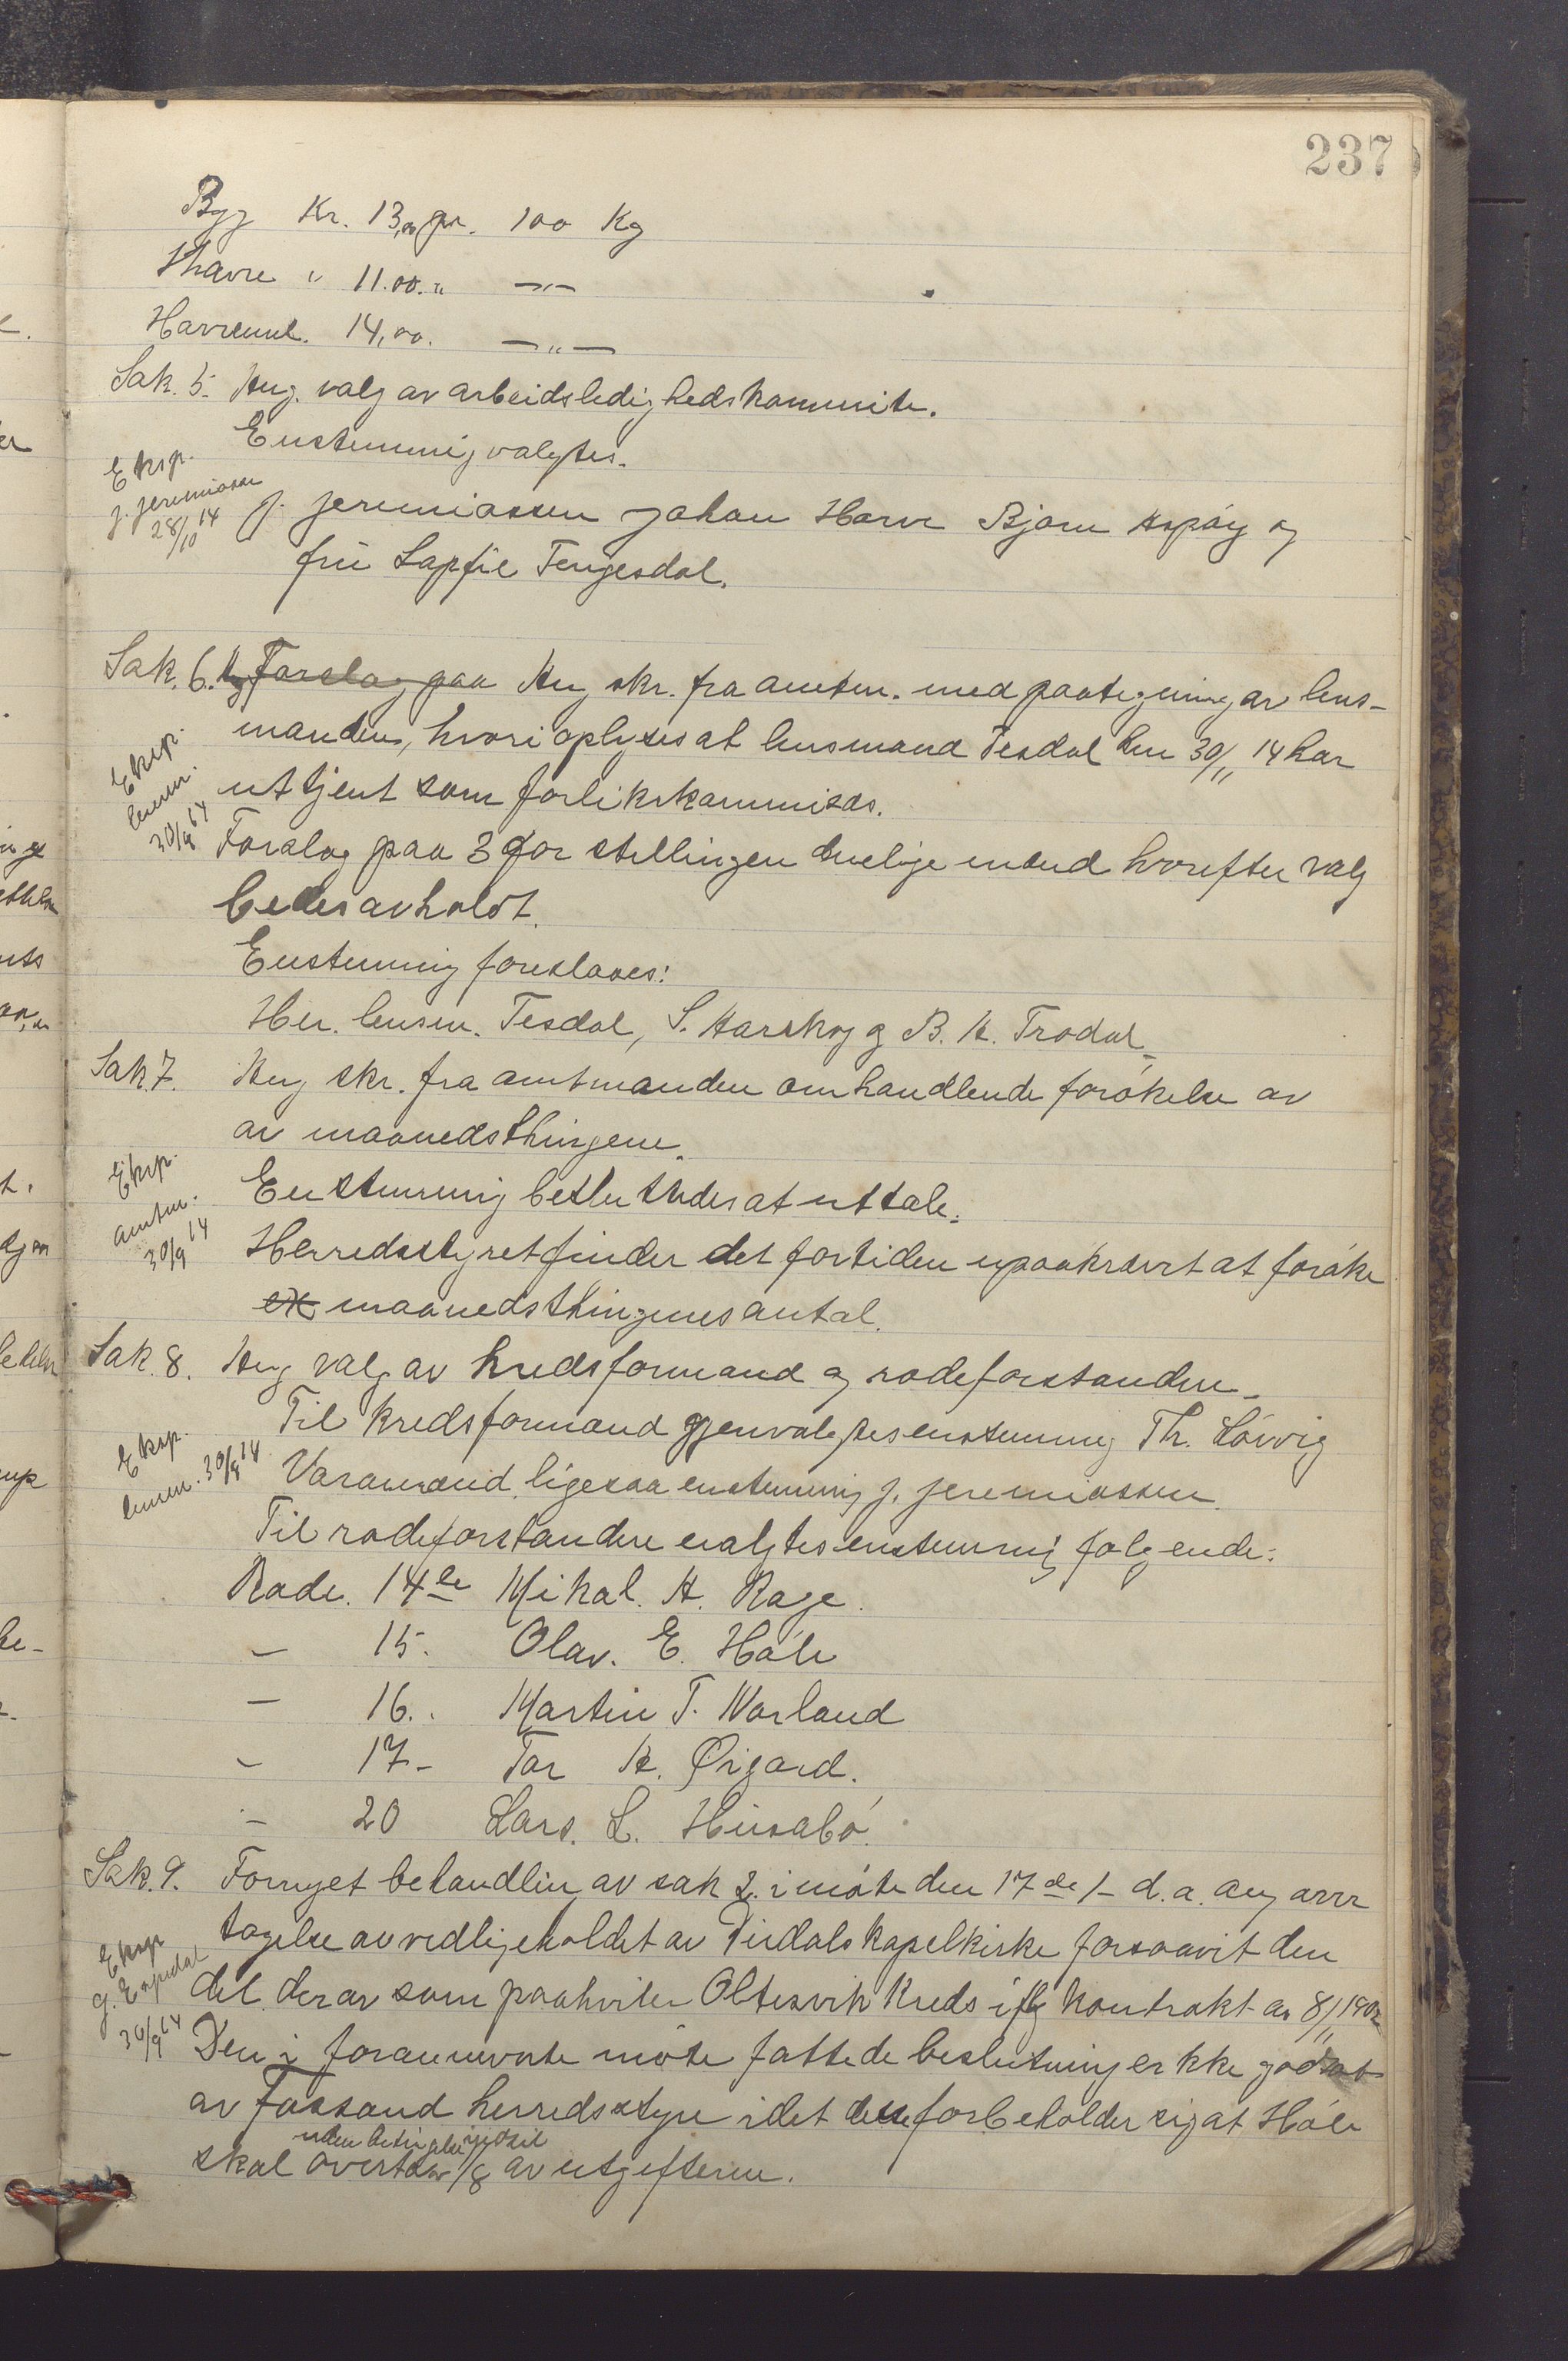 237
Byg Kr. 13,00 pr. 100 Kg
Havre " 11.00. " —"—
Havremel. 14,00. —"—
Sak. 5. Ang. valg av arbeidsledighedskommite.
Enstemmig valgtes.
Eksp.
J. Jeremiassen
28/10 14
J. Jeremiassen Johan Harve Bjarne Aspøy og
fru Tengesdal.
Sak. 6. Forslag paa Ang skr. fra amtm. med paategning av lens-
manden, hvori oplyses at lensmand Tesdal den 30/11 14 har
Eksp.
lensm.
30/9 14
uttjent som forlikskommisær.
Forslag paa 3 for stillingen duelige mænd hvorefter valg
bedes avholdt.
Enstemmig foreslaaes:
Hr. lensm. Tesdal, S. Aarskog og B. A. Trodal
Sak. 7. Ang skr. fra amtmanden omhandlende forøkelse av
av maanedsthingene.
Eksp.
amtm.
30/9 14
Enstemmig besluttedes at uttale:
Herredsstyret finder det fortiden upaakrævet at forøke
maanedsthingenes antal.
Sak. 8. Ang valg av kredsformand og rodeforstandere
Til kredsformand gjenvalgtes enstemmig Th. Løvvig
Eksp.
lensm. 30/9 14
Varamænd ligesaa enstemmig J. Jeremiassen.
Til rodeforstandere valgtes enstemmig følgende:
Rode. 14de Mikal. A. Rage.
— 15. Olav. E. Håle
— 16. Martin T. Norland
— 17- Tor K. Øigard.
— 20 Lars. L. Husabø.
Sak. 9. Fornyet behandling av sak 2. i møte den 17de /- d.a. ang over
tagelse av vedligeholdet av Dirdals kapelkirke forsaavit den
Eksp
30/9 14
del derav som paahviler Oltesvik Kreds iflg kontrakt av 8/11 1902
Den i forannævnte møte fattede beslutning er ikke godtat
av Fossand herredsstyre idet dette forbeholder sig at Håle
uten betingelse
skal overta 1/8 av utgifterne.